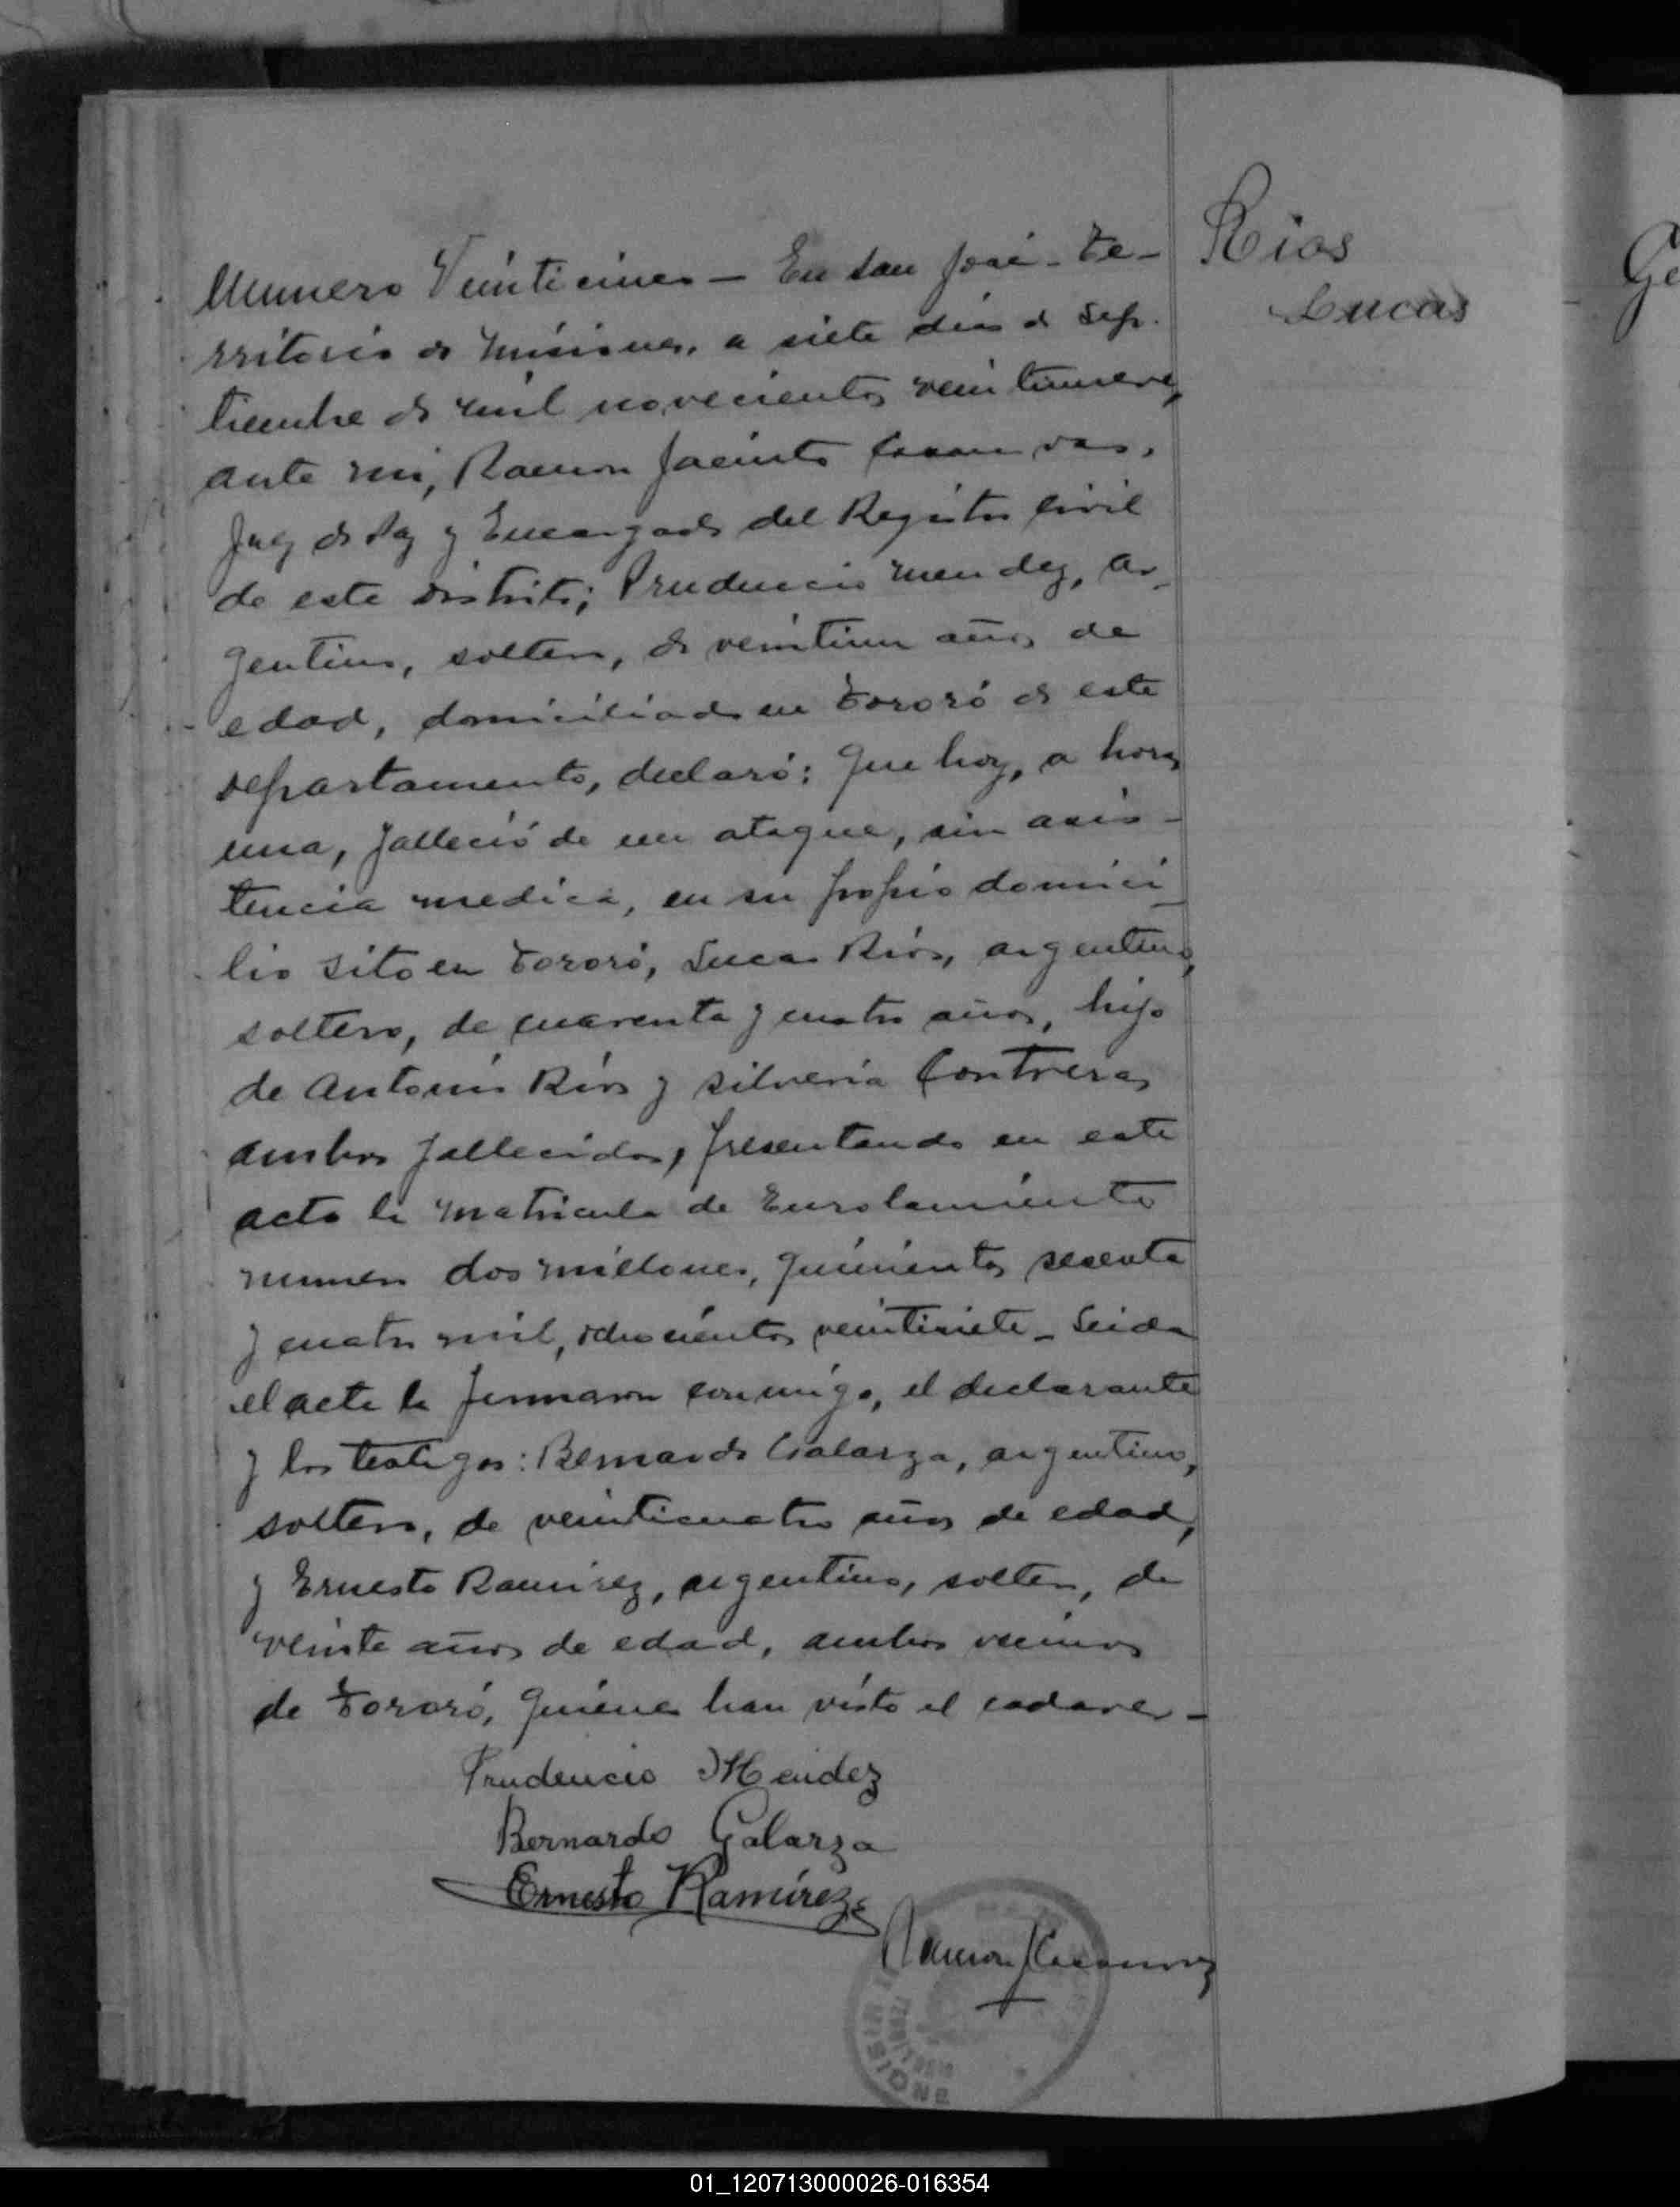 Numero Veinticinco — En San José – Te-
rritorio de Misiones, a siete dias de Sep-
tiembre de mil novecientos veintinueve,
ante mi, Ramon Jacinto Casanovas,
Juez de Paz y Encargado del Registro Civil
de este distrito; Prudencio Mendez, ar-
gentino, soltero, de veintiun años de
edad, domiciliado en Tororó de este
departamento, declaró: Que hoy, a horas
una, falleció de un ataque, sin asis-
tencia medica, en su propio domici-
lio sito en Tororó, Lucas Ríos, argentino,
soltero, de cuarenta y cuatro años, hijo
de Antonio Ríos y Silveria Contreras
ambos fallecidos, presentando en este
acto la matricula de Enrolamiento
numero dos millones, quinientos sesenta
y cuatro mil, ochocientos veintisiete – Leida
el acta la firmaron conmigo, el declarante
y los testigos: Bernardo Galarza, argentino,
soltero, de veinticuatro años de edad,
y Ernesto Ramirez, argentino, soltero, de
veinte años de edad, ambos vecinos
de Tororó, quienes han visto el cadaver –
Prudencio Mendez
Bernardo Galarza
Ernesto Ramírez
Ramon J Casanovas
Rios
Lucas
Ge
TERRITORIO
MISIONE
01_120713000026-016354